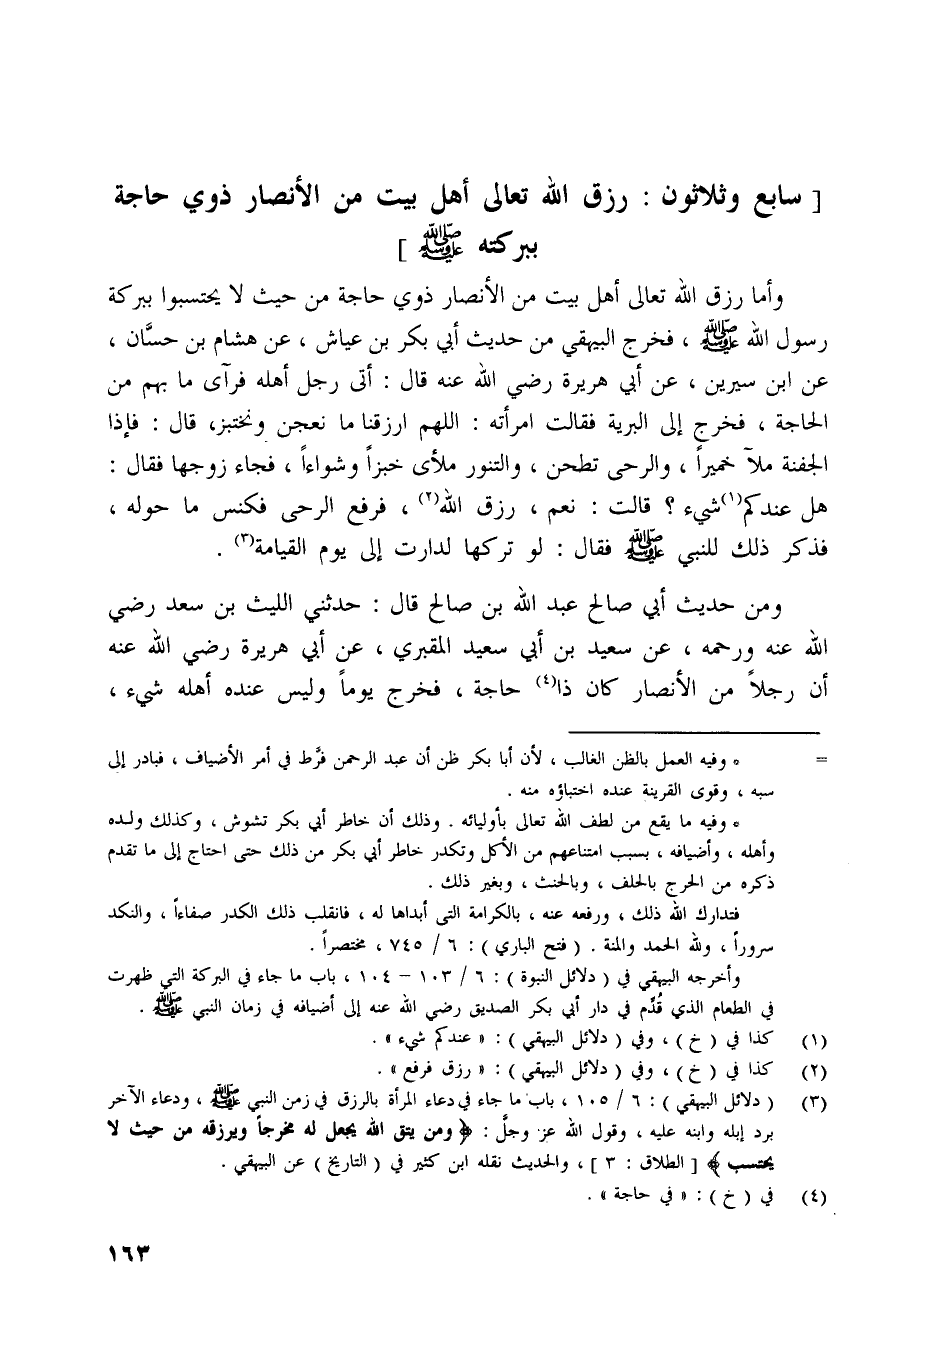 [ سابع وثلاثون : رزق الله تعالى أهل بيت من الأنصار ذوي حاجة
ببركته ﷺ ]
وأما رزق الله تعالى أهل بيت من الأنصار ذوي حاجة من حيث لا يحتسبوا ببركة
رسول الله ﷺ ، فخرج البيهقي من حديث أبي بكر بن عياش ، عن هشام بن حسَّان ،
عن ابن سيرين ، عن أبي هريرة رضي الله عنه قال : أتى رجل أهله فرآى ما بهم من
الحاجة ، فخرج إلى البرية فقالت امرأته : اللهم ارزقنا ما نعجن ونختبز، قال : فإذا
الجفنة ملآ خميراً ، والرحى تطحن ، والتنور ملأى خبزاً وشواءاً ، فجاء زوجها فقال :
هل عندكم(١)شيء ؟ قالت : نعم ، رزق الله(٢) ، فرفع الرحى فكنس ما حوله ،
فذكر ذلك للنبي ﷺ فقال : لو تركها لدارت إلى يوم القيامة(٣) .
ومن حديث أبي صالح عبد الله بن صالح قال : حدثني الليث بن سعد رضي
الله عنه ورحمه ، عن سعيد بن أبي سعيد المقبري ، عن أبي هريرة رضي الله عنه
أن رجلاً من الأنصار كان ذا(٤) حاجة ، فخرج يوماً وليس عنده أهله شيء ،
= ٥ وفيه العمل بالظن الغالب ، لأن أبا بكر ظن أن عبد الرحمن فرَّط في أمر الأضياف ، فبادر إلى
سبه ، وقوى القرينة عنده اختباؤه منه .
٥ وفيه ما يقع من لطف الله تعالى بأوليائه . وذلك أن خاطر أبي بكر تشوش ، وكذلك ولده
وأهله ، وأضيافه ، بسبب امتناعهم من الأكل وتكدر خاطر أبي بكر من ذلك حتى احتاج إلى ما تقدم
ذكره من الحرج بالحلف ، وبالحنث ، وبغير ذلك .
فتدارك الله ذلك ، ورفعه عنه ، بالكرامة التى أبداها له ، فانقلب ذلك الكدر صفاءاً ، والنكد
سروراً ، ولله الحمد والمنة . ( فتح الباري ) : ٦ / ٧٤٥ ، مختصراً .
وأخرجه البيهقي في ( دلائل النبوة ) : ٦ / ١٠٣ – ١٠٤ ، باب ما جاء في البركة التي ظهرت
في الطعام الذي قُدِّم في دار أبي بكر الصديق رضي الله عنه إلى أضيافه في زمان النبي ﷺ .
(١) كذا في ( خ ) ، وفي ( دلائل البيهقي ) : « عندكم شيء » .
(٢) كذا في ( خ ) ، وفي ( دلائل البيهقي ) : « رزق فرفع » .
(٣) ( دلائل البيهقي ) : ٦ / ١٠٥ ، باب ما جاء في دعاء المرأة بالرزق في زمن النبي ﷺ ، ودعاء الآخر
برد إبله وابنه عليه ، وقول الله عز وجلَّ : ﴿ ومن يتق الله يجعل له مخرجاً ويرزقه من حيث لا
يحتسب ﴾ [ الطلاق : ٣ ] ، والحديث نقله ابن كثير في ( التاريخ ) عن البيهقي .
(٤) في ( خ ) : « في حاجة » .
١٦٣